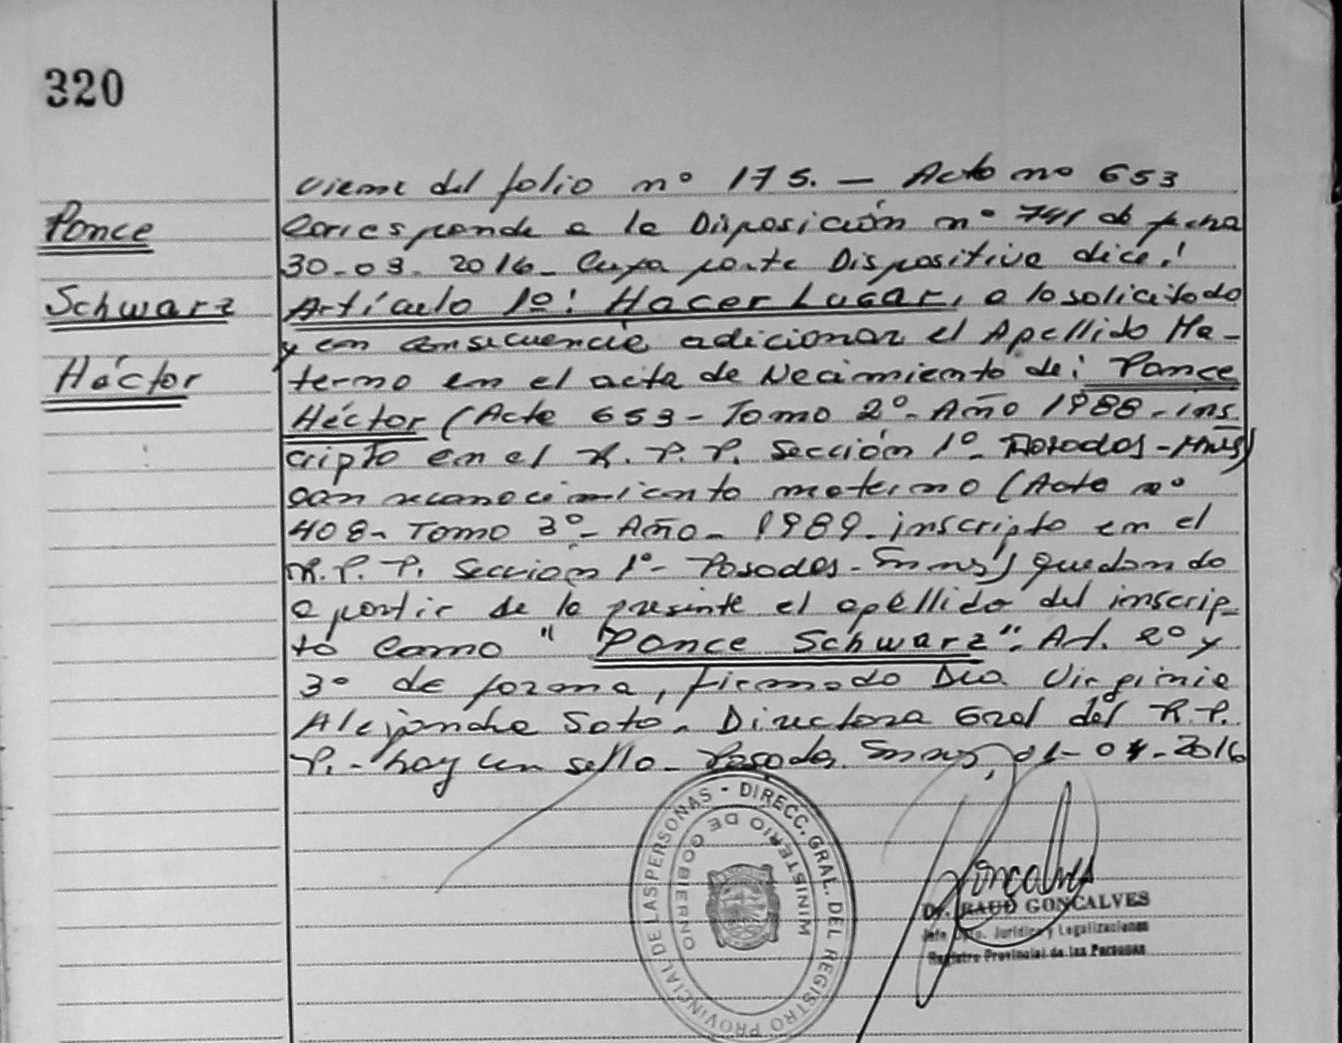 320
Viene del folio nº 175. — Acta nº 653
Ponce
Corresponde a la Disposición nº 741 de fecha
30-03-2016- Cuya parte Dispositiva dice:
Schwarz
Artículo 1º: Hacer Lugar, a lo solicitado
y en consecuencia adicionar el Apellido Ma-
Héctor
terno en el acta de Nacimiento de: Ponce
Héctor (Acta 653- Tomo 2º- Año 1988- ins
cripto en el R. P. P. Sección 1º- Posadas-Mnes)
con reconocimiento materno (Acta nº
408- Tomo 3º- Año- 1989- inscripto en el
R. P. P. Sección 1º- Posadas- Mnes) quedando
a partir de la presente el apellido del inscrip-
to como "Ponce Schwarz". Art. 2º y
3º de forma, firmado Dra. Virginia
Alejandra Soto- Directora Gral del R. P.
P.- hay un sello- Posadas Mnes, 01-04-2016
DIRECC. GRAL. DEL REGISTRO PROVINCIAL DE LAS PERSONAS -
MINISTERIO DE GOBIERNO
Goncalves
Dr. RAUD GONCALVES
Jefe Dpto. Jurídico y Legalizaciones
Registro Provincial de las Personas